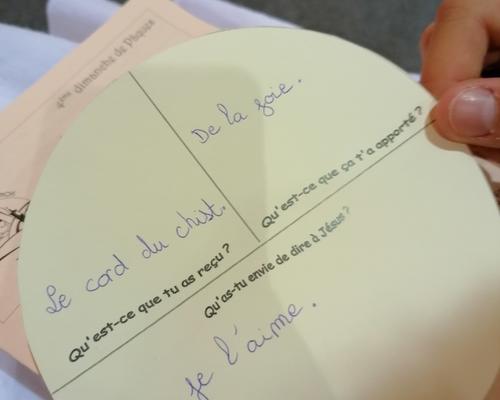 4ème dimanche de Pâques
De la joie.
Qu'est-ce que ça t'a apporté ?
Le cord du christ.
Qu'est-ce que tu as reçu ?
Qu'as-tu envie de dire à Jésus ?
je l'aime.